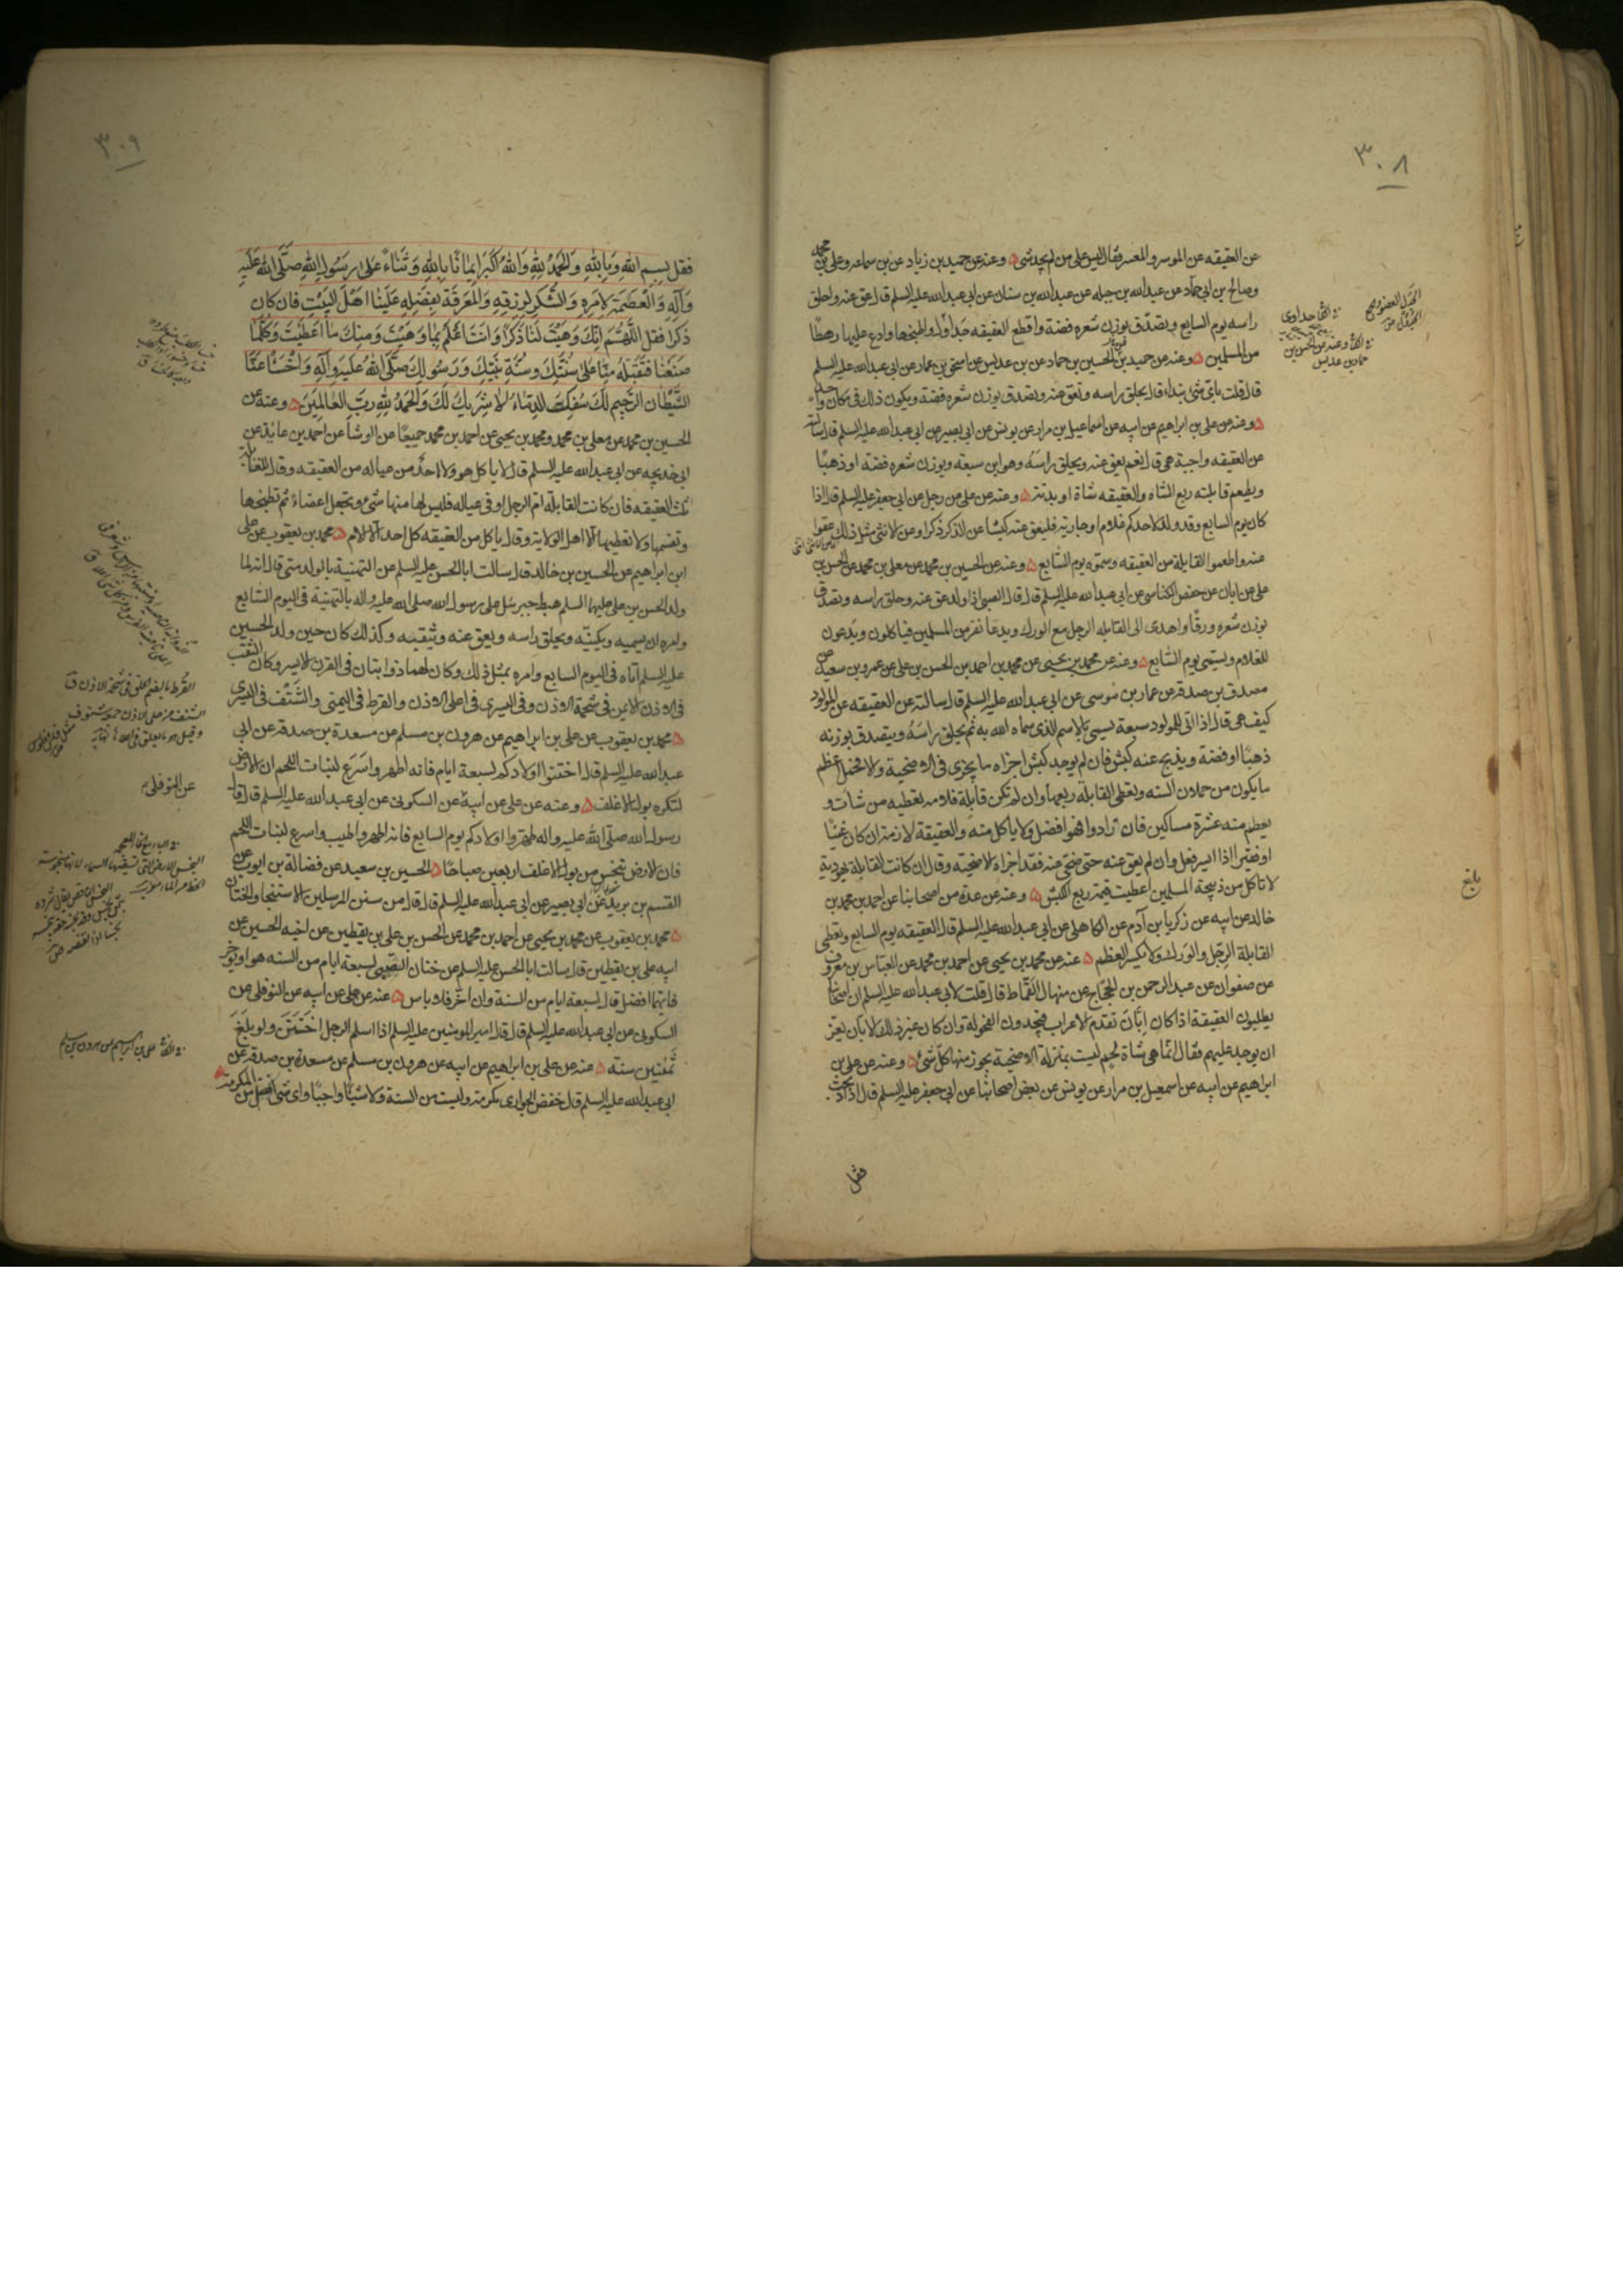 ٣٠٨
عن العقيقه عن الموسر والمعسر فقال ليس على من لم يجد شئ وعنه عن حميد بن زياد عن بن سماعه وعلى بن محمد
وصالح بن ابى حماد عن عبدالله بن جبله عن عبدالله بن سنان عن ابى عبدالله عليه السلم قال عق عنه واحلق
راسه يوم السابع وتصدق بوزن شعره فضة واقطع العقيقه جداول واطبخها وادع عليها رهطا
من المسلمين وعنه عن حميد بن الحسين بن حماد عن بن عديس عن اسحق بن عمار عن ابى عبدالله عليه السلم
قال قلت باى شئ نبداء قال يحلق راسه وتعق عنه وتصدق بوزن شعره فضة ويكون ذلك فى مكان واحد
وعنه عن على بن ابراهيم عن ابيه عن اسماعيل بن مرار عن يونس عن ابى بصير عن ابى عبدالله عليه السلم قال سالته
عن العقيقه واجبة هى قال نعم يعق عنه ويحلق راسه وهو ابن سبعة ويوزن شعره فضة او ذهبا
ويطعم قابلته ربع الشاه والعقيقه شاة او بدنة وعنه عن على عن رجل عن ابى جعفر عليه السلم قال اذا
كان يوم السابع وقد ولد لاحدكم غلام او جارية فليعق عنه كبشا عن الذكر ذكرا وعن الانثى مثل ذلك عقوا
عنه واطعموا القابلة من العقيقه وسموه يوم السابع وعنه عن الحسين بن محمد عن معلى بن محمد عن الحسن بن
على عن ابان عن حفص الكناسى عن ابى عبدالله عليه السلم قال قال الصبى اذا ولد عق عنه وحلق راسه وتصدق
بوزن شعره ورقا واهدى الى القابله الرجل مع الورك ويدعا نفر من المسلمين فياكلون ويدعون
للغلام ويسمى يوم السابع وعنه عن محمد بن يحيى عن محمد بن احمد عن الحسن بن على عن عمرو بن سعيد عن
مصدق بن صدقه عن عمار بن موسى عن ابى عبدالله عليه السلم قال سالته عن العقيقه عن المولود
كيف هى قال اذا اتى للمولود سبعة يسمى بالاسم الذى سماه الله به ثم يحلق راسه ويتصدق بوزنه
ذهبا او فضة ويذبح عنه كبش فان لم يوجد كبش اجزاه ما يجزى فى الاضحية والا فحمل اعظم
ما يكون من حملان السنه ويعطى القابلة ربعها وان لم تكن قابلة فلامه تعطيه من شات و
يطعم منه عشرة مساكين فان زادوا فهو افضل ولا ياكل منه والعقيقة لازمة ان كان غنيا
او فقيرا اذا ايسر فعل وان لم يعق عنه حتى ضحى عنه فقد اجزاه الاضحيته وقال ان كانت القابلة يهودية
لا تاكل من ذبيحة المسلمين اعطيت قيمة ربع الكبش وعنه عن عدة من اصحابنا عن احمد بن محمد بن
خالد عن ابيه عن زكريا بن آدم عن الكاهلى عن ابى عبدالله عليه السلم قال العقيقه يوم السابع وتعطى
القابلة الرجل والورك ولا يكسر العظم عنه عن محمد بن يحيى عن احمد بن محمد عن العباس بن معروف
عن صفوان عن عبد الرحمن بن الحجاج عن منهال القماط قال قلت لابى عبدالله عليه السلم ان اصحابنا
يطلبون العقيقة اذا كان ابان تقدم الاعراب فيجدون الفحولة وان كان غير ذلك الابان يعز
ان يوجد عليهم فقال انما هى شاة لحم ليست بمنزلة الاضحية يجوز منها كل شئ وعنه عن على بن
ابراهيم عن ابيه عن اسمعيل بن مرار عن يونس عن بعض اصحابنا عن ابى جعفر عليه السلم قال اذا ذبحت
فقل
بلغ
٣٠٩
فقل بسم الله وبالله والحمد لله والله اكبر ايمانا بالله وثناء على رسول الله صلى الله عليه
وآله والعصمة لامره والشكر لرزقه والمعرفة بفضله علينا اهل البيت فان كان
ذكرا فقل اللهم انك وهبت لنا ذكرا وانت اعلم بما وهبت ومنك ما اعطيت وكلما
صنعنا فتقبله منا على سنتك وسنة نبيك ورسولك صلى الله عليه وآله واخسا عنا
الشيطان الرجيم لك سفكت الدماء لا شريك لك والحمد لله رب العالمين وعنه عن
الحسين بن محمد عن معلى بن محمد ومحمد بن يحيى عن احمد بن محمد جميعا عن الوشا عن احمد بن عايذ عن
ابى خديجه عن ابى عبدالله عليه السلم قال لا ياكل هو ولا احد من عياله من العقيقه وقال للقابلة
ثلث العقيقه فان كانت القابلة ام الرجل او فى عياله فليس لها منها شئ وتجعل اعضاء ثم تطبخها
وتقسمها ولا تعطيها الا اهل الولاية وقال ياكل من العقيقه كل احد الا الام محمد بن يعقوب عن على
ابن ابراهيم عن الحسين بن خالد قال سالت ابا الحسن عليه السلم عن التهنية بالولد متى قال انه لما
ولد الحسن بن على عليهما السلم هبط جبرئيل على رسول الله صلى الله عليه واله بالتهنية فى اليوم السابع
وامره ان يسميه ويكنيه ويحلق راسه ويعق عنه ويثقبه وكذلك كان حين ولد الحسين
عليه السلم اتاه فى اليوم السابع وامره بمثل ذلك وكان لهما ذوابتان فى القرن الايسر وكان الثقب
فى الاذن الايمن فى شحمة الاذن وفى اليسرى فى اعلى الاذن والقرط فى اليمنى والشنف فى اليسرى
محمد بن يعقوب عن على بن ابراهيم عن هرون بن مسلم عن مسعدة بن صدقه عن ابى
عبدالله عليه السلم قال اختنوا اولادكم لسبعة ايام فانه اطهر واسرع لنبات اللحم ان الارض
لتكره بول الاغلف وعنه عن على عن ابيه عن السكونى عن ابى عبدالله عليه السلم قال قال
رسول الله صلى الله عليه واله طهروا اولادكم يوم السابع فانه اطهر واطيب واسرع لنبات اللحم
فان الارض تنجس من بول الاغلف اربعين صباحا الحسين بن سعيد عن فضالة بن ايوب عن
القسم بن بريد عن ابى بصير عن ابى عبدالله عليه السلم قال قال من سنن المرسلين الاستنجا والختان
محمد بن يعقوب عن محمد بن يحيى عن احمد بن محمد عن الحسن بن على بن يقطين عن اخيه الحسين عن
ابيه على بن يقطين قال سالت ابا الحسن عليه السلم عن ختان الصبى لسبعة ايام من السنه هو او يؤخر
فايهما افضل قال لسبعة ايام من السنة وان اخر فلا باس عنه عن على عن ابيه عن النوفلى عن
السكونى عن ابى عبدالله عليه السلم قال قال امير المومنين عليه السلم اذا اسلم الرجل اختتن ولو بلغ
ثمنين سنة عنه عن على بن ابراهيم عن ابيه عن هرون بن مسلم عن مسعدة بن صدقه عن
ابى عبدالله عليه السلم قال خفض الجوارى مكرمة وليست من السنة ولا شيئا واجبا واى شئ افضل من المكرمة
القرط بالضم الحلق فى شحمة الاذن ق
عن النوفلى